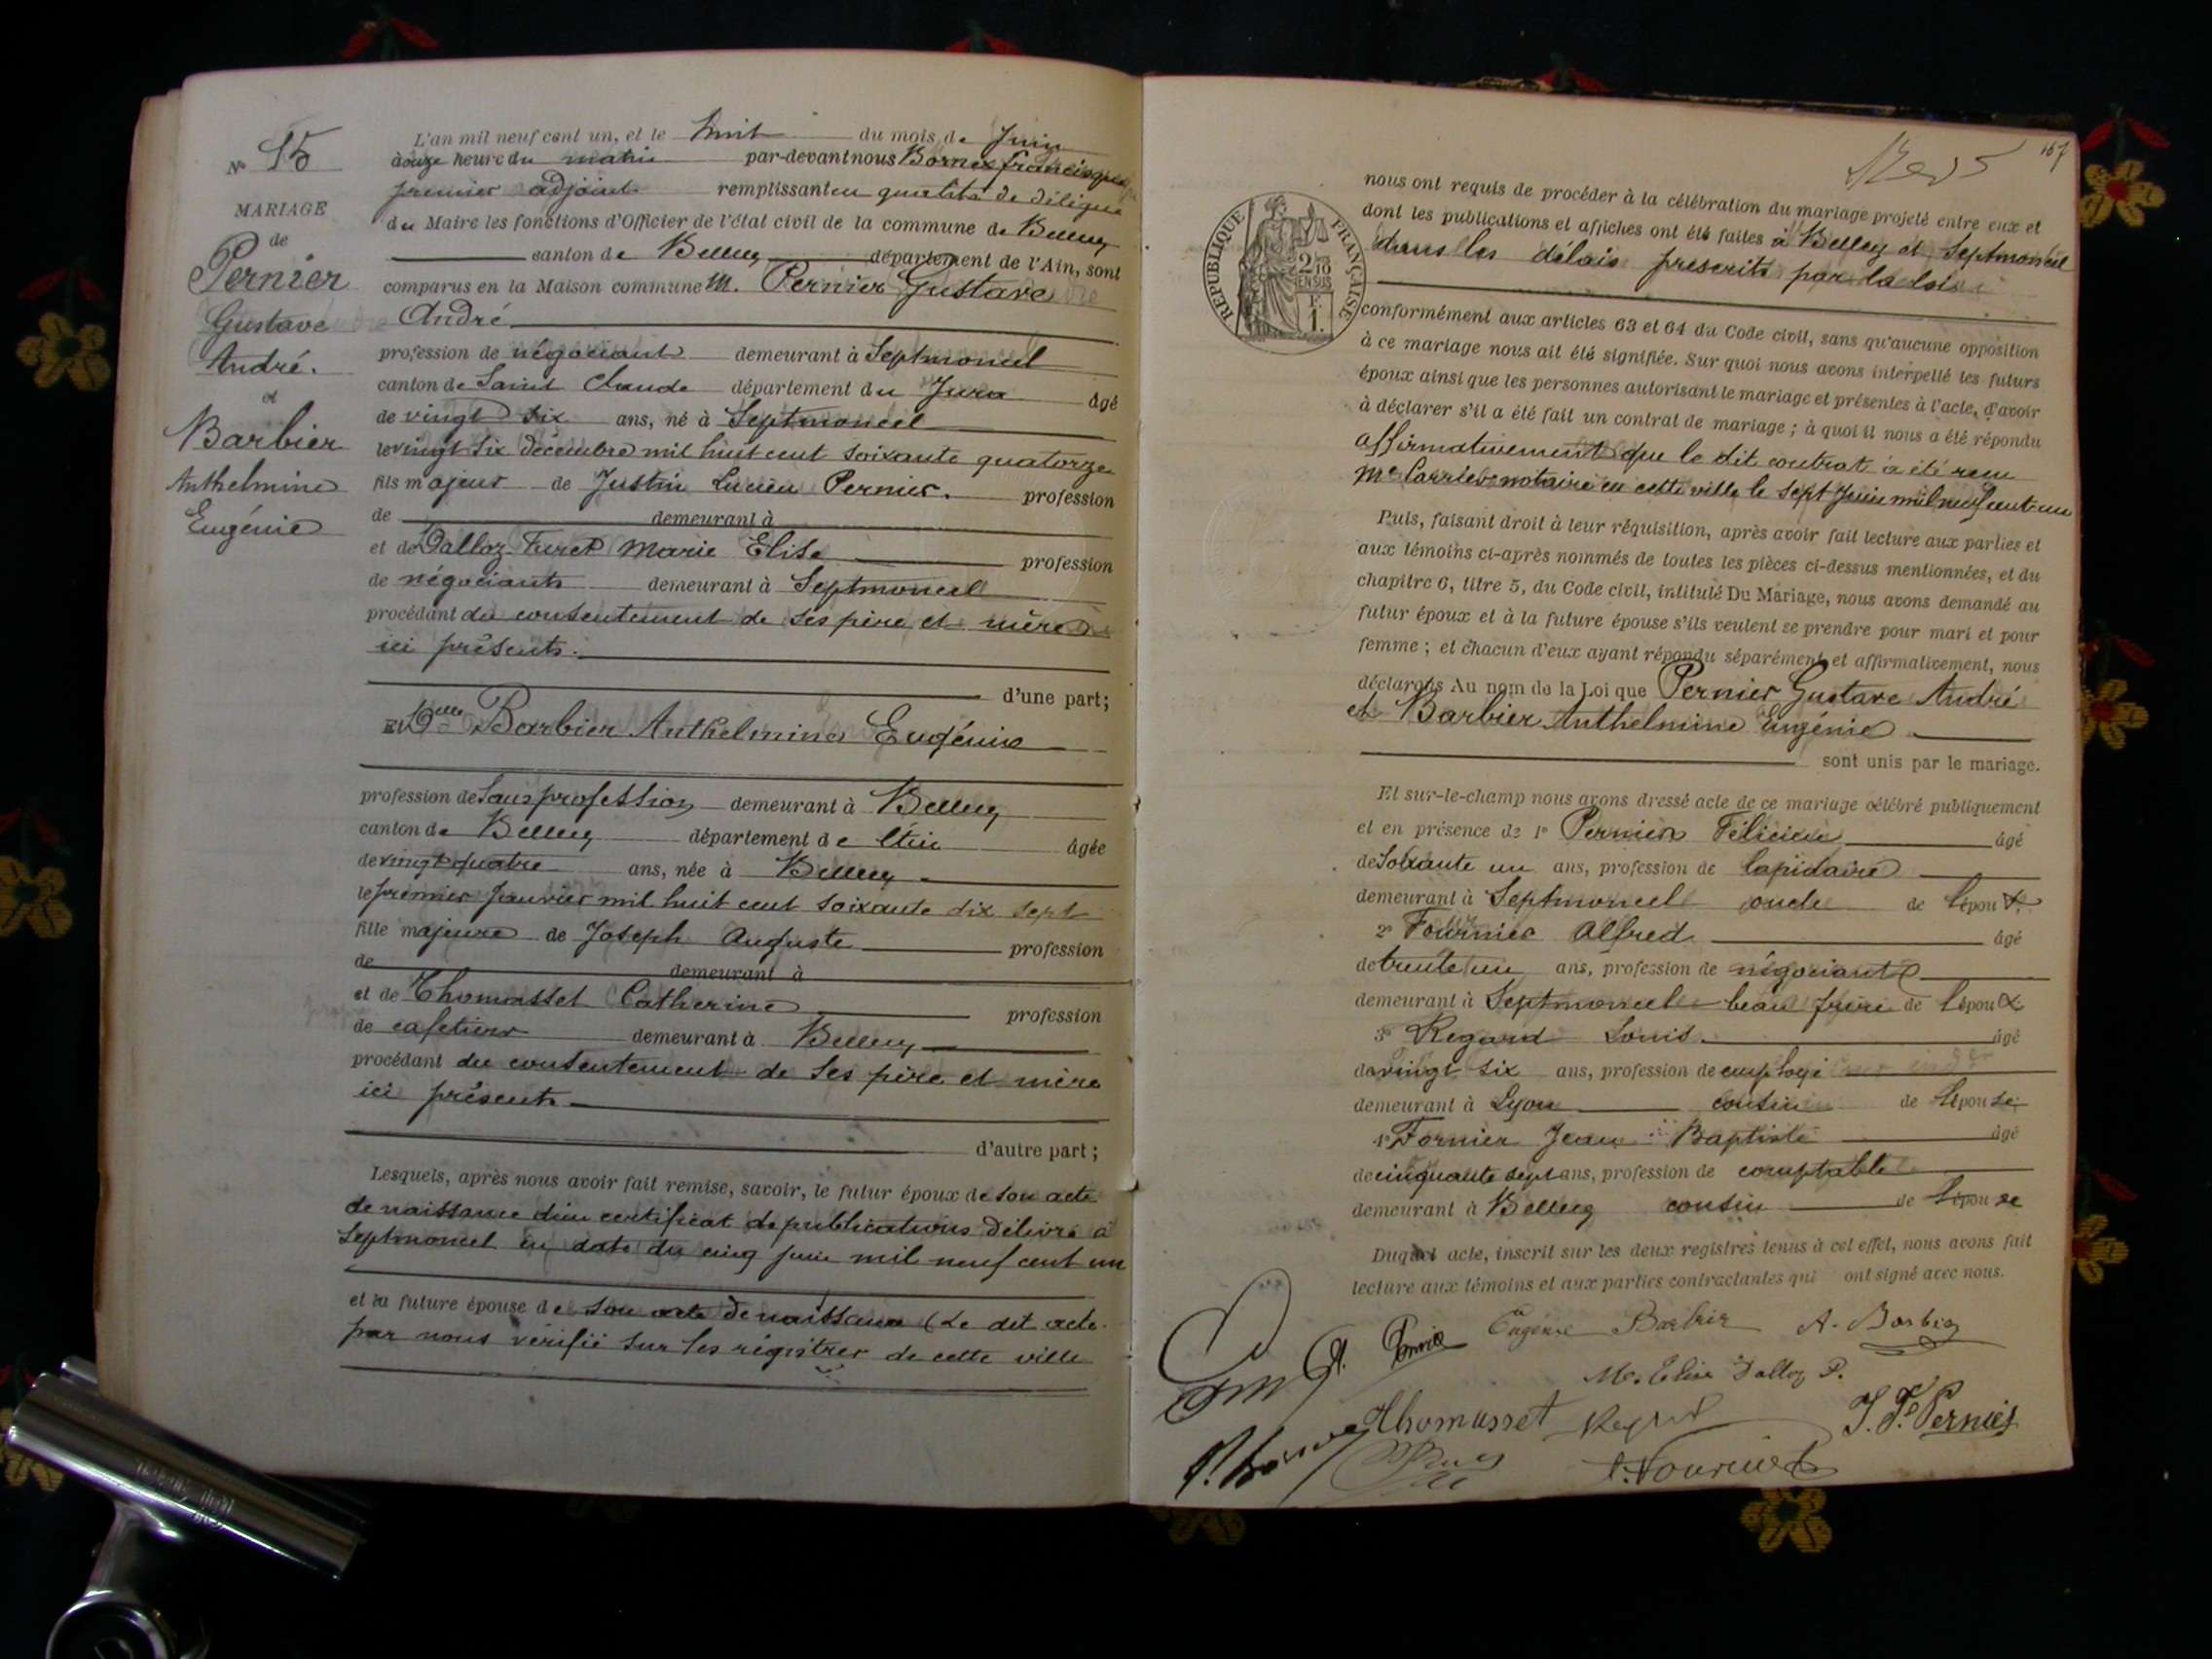 N° 15
MARIAGE
de
Pernier
Gustave
André.
et
Barbier
Anthelmine
Eugénie
L'an mil neuf cent un, et le huit du mois de Juin
à onze heure du matin par-devant nous Bornex francisque
premier adjoint remplissant en qualité de délégué
du Maire les fonctions d'Officier de l'état civil de la commune de Belley
canton de Belley département de l'Ain, sont
comparus en la Maison commune M. Pernier Gustave
André
profession de négociant demeurant à Septmoncel
canton de Saint Claude département du Jura âgé
de vingt six ans, né à Septmoncel
le vingt six décembre mil huit cent soixante quatorze
fils majeur de Justin Lucien Pernier. profession
de demeurant à
et de Dalloz-Furet Marie Elise profession
de négociants demeurant à Septmoncel
procédant du consentement de ses père et mère
ici présents.
d'une part;
Et Delle Barbier Anthelmine Eugénie
profession de Sans profession demeurant à Belley
canton de Belley département de l'Ain âgée
de vingt quatre ans, née à Belley
le premier Janvier mil huit cent soixante dix sept
fille majeure de Joseph Auguste profession
de demeurant à
et de Thomasset Catherine profession
de cafetiers demeurant à Belley
procédant du consentement de ses père et mère
ici présents
d'autre part;
Lesquels, après nous avoir fait remise, savoir, le futur époux de son acte
de naissance d'un certificat de publications délivré à
Septmoncel en date du cinq juin mil neuf cent un
et la future épouse de son acte de naissance (Le dit acte
par nous vérifié sur les régistres de cette ville
167
REPUBLIQUE FRANÇAISE
2/10
EN SUS
F.
1.
nous ont requis de procéder à la célébration du mariage projeté entre eux et
dont les publications et affiches ont été faites à Belley et Septmoncel
dans les délais prescrits par la loi
conformément aux articles 63 et 64 du Code civil, sans qu'aucune opposition
à ce mariage nous ait été signifiée. Sur quoi nous avons interpellé les futurs
époux ainsi que les personnes autorisant le mariage et présentes à l'acte, d'avoir
à déclarer s'il a été fait un contrat de mariage; à quoi il nous a été répondu
affirmativement que le dit contrat a été reçu
Me Carrier notaire en cette ville le sept Juin mil neuf cent un
Puis, faisant droit à leur réquisition, après avoir fait lecture aux parties et
aux témoins ci-après nommés de toutes les pièces ci-dessus mentionnées, et du
chapitre 6, titre 5, du Code civil, intitulé Du Mariage, nous avons demandé au
futur époux et à la future épouse s'ils veulent se prendre pour mari et pour
femme; et chacun d'eux ayant répondu séparément et affirmativement, nous
déclarons Au nom de la Loi que Pernier Gustave André
et Barbier Anthelmine Eugénie
sont unis par le mariage.
Et sur-le-champ nous avons dressé acte de ce mariage célébré publiquement
et en présence de 1° Pernier Félicien âgé
de Soixante un ans, profession de lapidaire
demeurant à Septmoncel oncle de l'époux
2° Fournier Alfred âgé
de trente un ans, profession de négociant
demeurant à Septmoncel beau frère de l'époux
3° Regard Louis âgé
de vingt six ans, profession de employé
demeurant à Lyon cousin de l'épouse
4° Fornier Jean Baptiste âgé
de cinquante sept ans, profession de comptable
demeurant à Belley cousin de l'épouse
Duquel acte, inscrit sur les deux registres tenus à cet effet, nous avons fait
lecture aux témoins et aux parties contractantes qui ont signé avec nous.
G. Pernier Eugénie Barbier A. Barbier
Me. Elise Dalloz P.
Thomasset Regard J. F. Pernier
Fournier